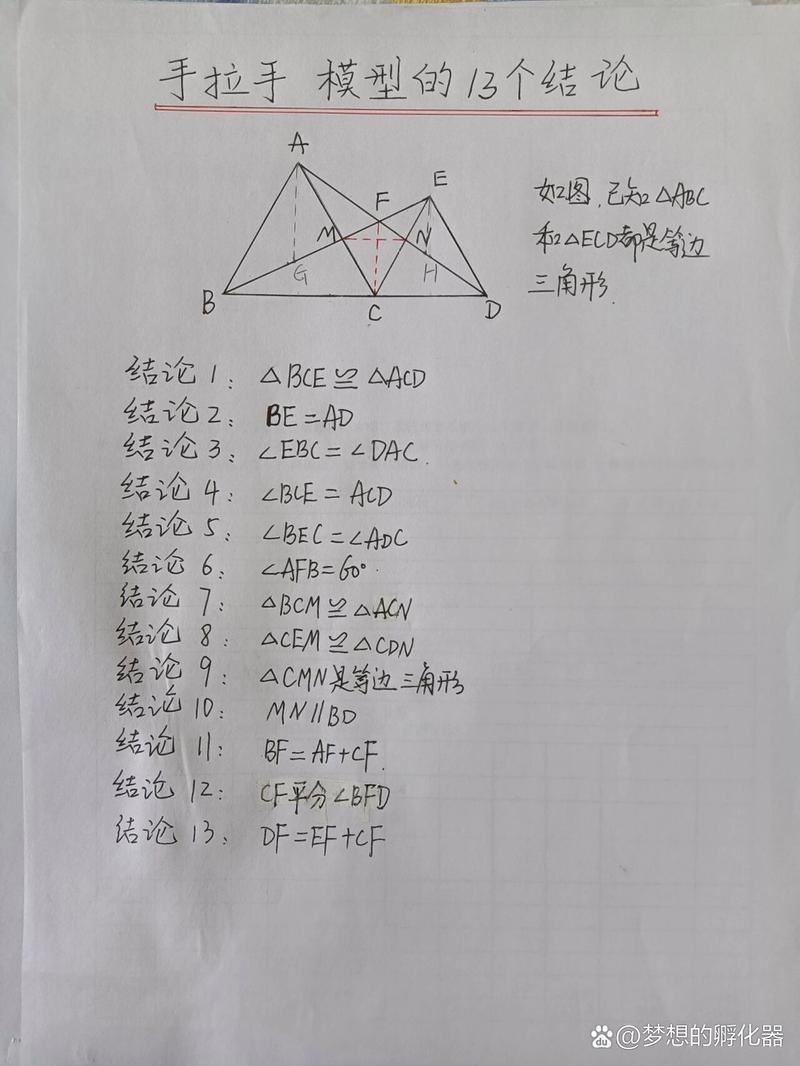 手拉手 模型的13个结论
A
E
F
M
N
G
H
B
C
D
如图,已知△ABC
和△ECD都是等边
三角形.
结论1: △BCE≌△ACD
结论2: BE=AD
结论3: ∠EBC=∠DAC.
结论4: ∠BCE=ACD
结论5: ∠BEC=∠ADC
结论6: ∠AFB=60°.
结论7: △BCM≌△ACN
结论8: △CEM≌△CDN
结论9: △CMN是等边三角形
结论10: MN∥BD
结论11: BF=AF+CF.
结论12: CF平分∠BFD
结论13: DF=EF+CF
Bai du @梦想的孵化器